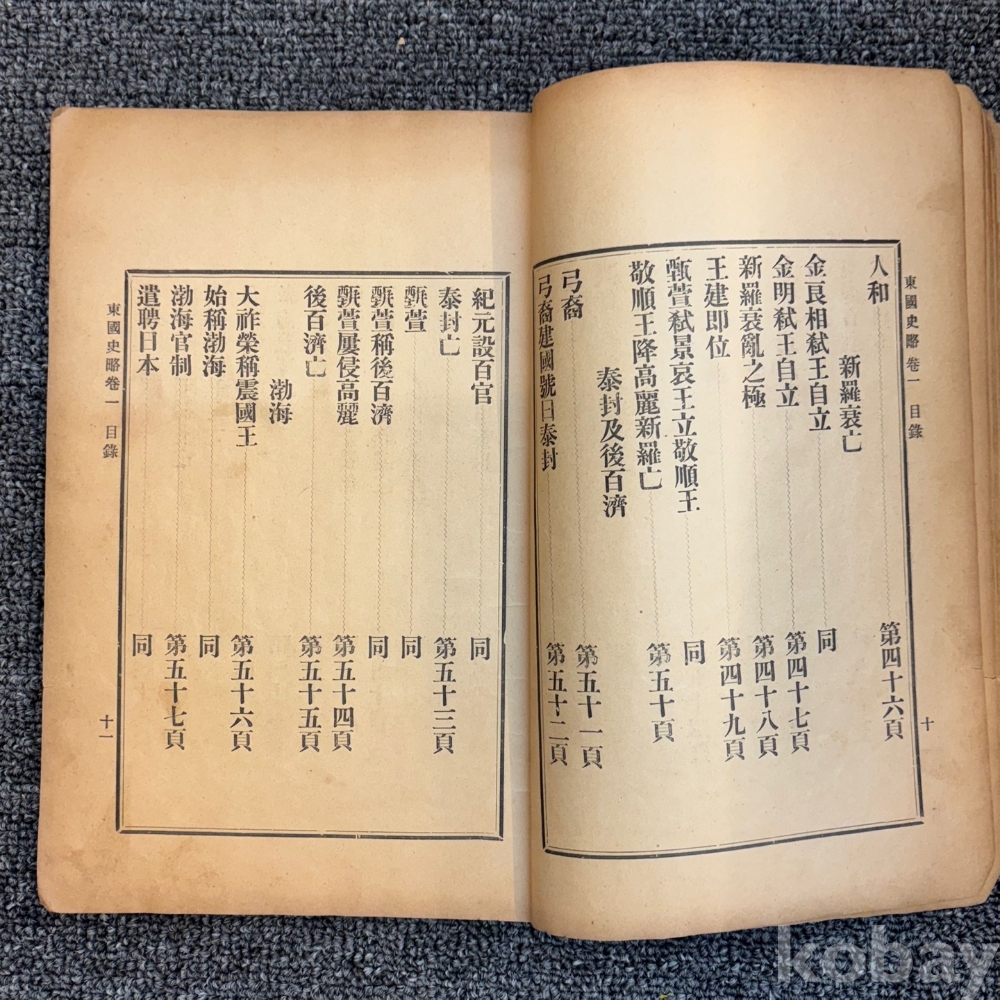 東國史略 卷一 目錄 十
人和 第四十六頁
新羅衰亡
金良相弑王自立 同
金明弑王自立 第四十七頁
新羅衰亂之極 第四十八頁
王建即位 第四十九頁
甄萱弑景哀王立敬順王 同
敬順王降高麗新羅亡 第五十頁
泰封及後百濟
弓裔 第五十一頁
弓裔建國號曰泰封 第五十二頁
紀元設百官 同
泰封亡 第五十三頁
甄萱 同
甄萱稱後百濟 同
甄萱屢侵高麗 第五十四頁
後百濟亡 第五十五頁
渤海
大祚榮稱震國王 第五十六頁
始稱渤海 同
渤海官制 第五十七頁
遣聘日本 同
東國史略卷一 目錄 十一
kobay